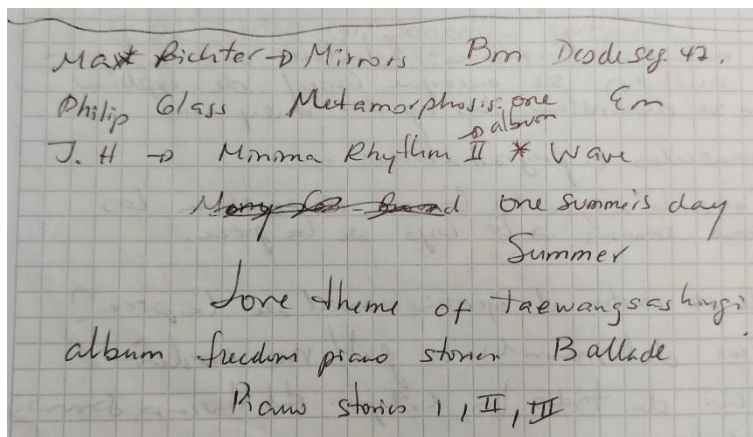 Max Richter → Mirrors Bm Desde seg. 42.
Philip Glass Metamorphosis: one Em
→ album
J. H → Minima Rhythm II * Wave
one summer's day
Summer
Love theme of taewangsashingi
album freedom piano stories Ballade
Piano stories 1, II, III